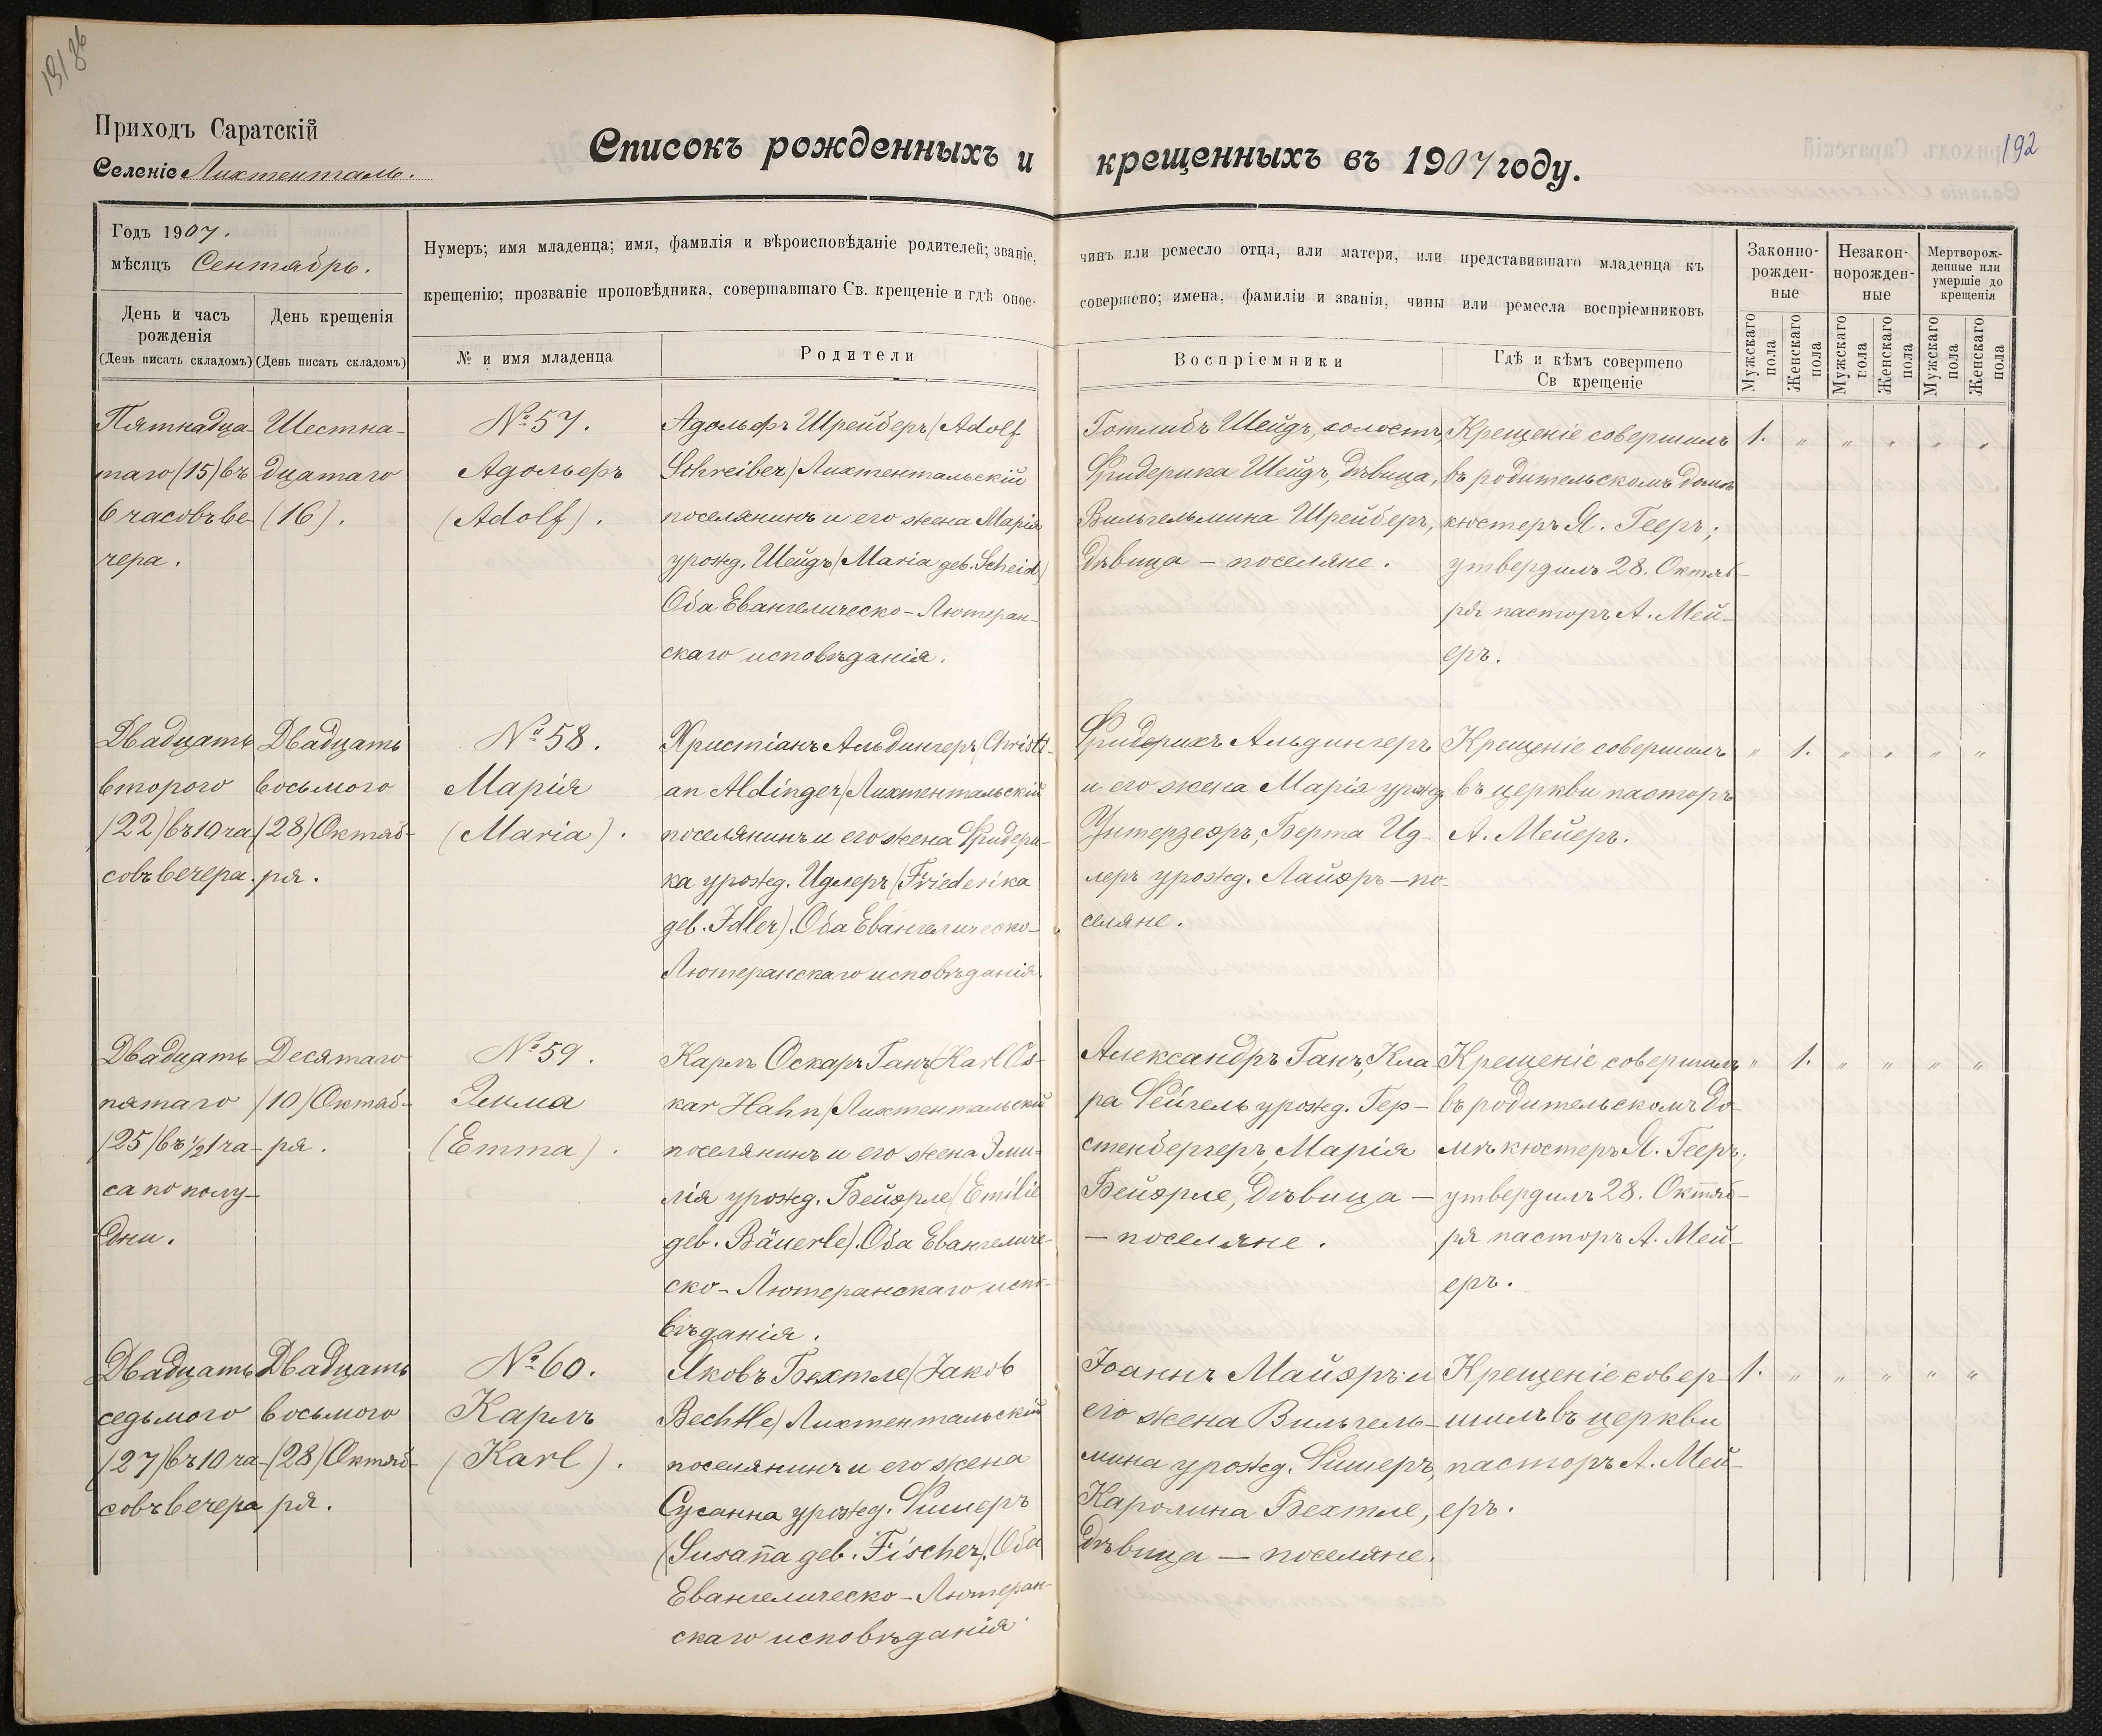 Приходъ Саратскій
Селеніе Лихтенталь.
Списокъ рожденныхъ и крещенныхъ въ 1907 году.
192
Годъ 1907.
мѣсяцъ Сентябрь.
День и часъ рожденія
(День писать складомъ)
День крещенія
(День писать складомъ)
Нумеръ; имя младенца; имя, фамилія и вѣроисповѣданіе родителей; званіе, чинъ или ремесло отца, или матери, или представившаго младенца къ
крещенію; прозваніе проповѣдника, совершавшаго Св. крещеніе и гдѣ оное совершено; имена, фамиліи и званія, чины или ремесла воспріемниковъ
№ и имя младенца
Родители
Воспріемники
Гдѣ и кѣмъ совершено
Св крещеніе
Законно-
рожден-
ные
Незакон-
норожден-
ные
Мертворож-
денные или
умершіе до
крещенія
Мужскаго пола
Женскаго пола
Мужскаго пола
Женскаго пола
Мужскаго пола
Женскаго пола
Пятнадца-
таго (15) въ
6 часовъ ве-
чера.
Шестна-
дцатаго
(16).
№ 57.
Адольфъ
(Adolf).
Адольфъ Шрейберъ (Adolf
Schreiber) Лихтентальскій
поселянинъ и его жена Марія
урожд. Шейдъ (Maria geb. Scheid)
Оба Евангелическо-Лютеран-
скаго исповѣданія.
Готлибъ Шейдъ, холостъ,
Фридерика Шейдъ, дѣвица,
Вильгельмина Шрейберъ,
дѣвица — поселяне.
Крещеніе совершилъ
въ родительскомъ домѣ
кюстеръ Я. Гееръ;
утвердилъ 28. Октяб-
ря пасторъ А. Мей-
еръ.
1. " " " " "
Двадцать
второго
(22) въ 10 ча-
совъ вечера.
Двадцать
восьмого
(28) Октяб-
ря.
№ 58.
Марія
(Maria).
Христіанъ Альдингеръ (Christi-
an Aldinger) Лихтентальскій
поселянинъ и его жена Фридери-
ка урожд. Идлеръ (Friederika
geb. Idler). Оба Евангелическо-
Лютеранскаго исповѣданія.
Фридерихъ Альдингеръ
и его жена Марія урожд.
Унтерзееръ, Берта Ид-
леръ урожд. Лайэръ — по-
селяне.
Крещеніе совершилъ
въ церкви пасторъ
А. Мейеръ.
" 1. " " " "
Двадцать
пятаго
(25) въ ½1 ча-
са по полу-
дни.
Десятаго
(10) Октяб-
ря.
№ 59.
Эмма
(Emma).
Карлъ Оскаръ Ганъ (Karl Os-
kar Hahn) Лихтентальскій
поселянинъ и его жена Эми-
лія урожд. Бейэрле (Emilie
geb. Bäuerle). Оба Евангеличе-
ско-Лютеранскаго испо-
вѣданія.
Александръ Ганъ, Кла-
ра Фейгель урожд. Гер-
стенбергеръ, Марія
Бейэрле, дѣвица —
— поселяне.
Крещеніе совершилъ
въ родительскомъ до-
мѣ кюстеръ Я. Гееръ;
утвердилъ 28. Октяб-
ря пасторъ А. Мей-
еръ.
" 1. " " " "
Двадцать
седьмого
(27) въ 10 ча-
совъ вечера
Двадцать
восьмого
(28) Октяб-
ря.
№ 60.
Карлъ
(Karl).
Яковъ Бехтле (Jakob
Bechtle) Лихтентальскій
поселянинъ и его жена
Сусанна урожд. Фишеръ
(Susan̄a geb. Fischer). Оба
Евангелическо-Лютеран-
скаго исповѣданія
Іоаннъ Майэръ и
его жена Вильгель-
мина урожд. Фишеръ,
Каролина Бехтле,
дѣвица — поселяне.
Крещеніе совер-
шилъ въ церкви
пасторъ А. Мей-
еръ.
1. " " " " "